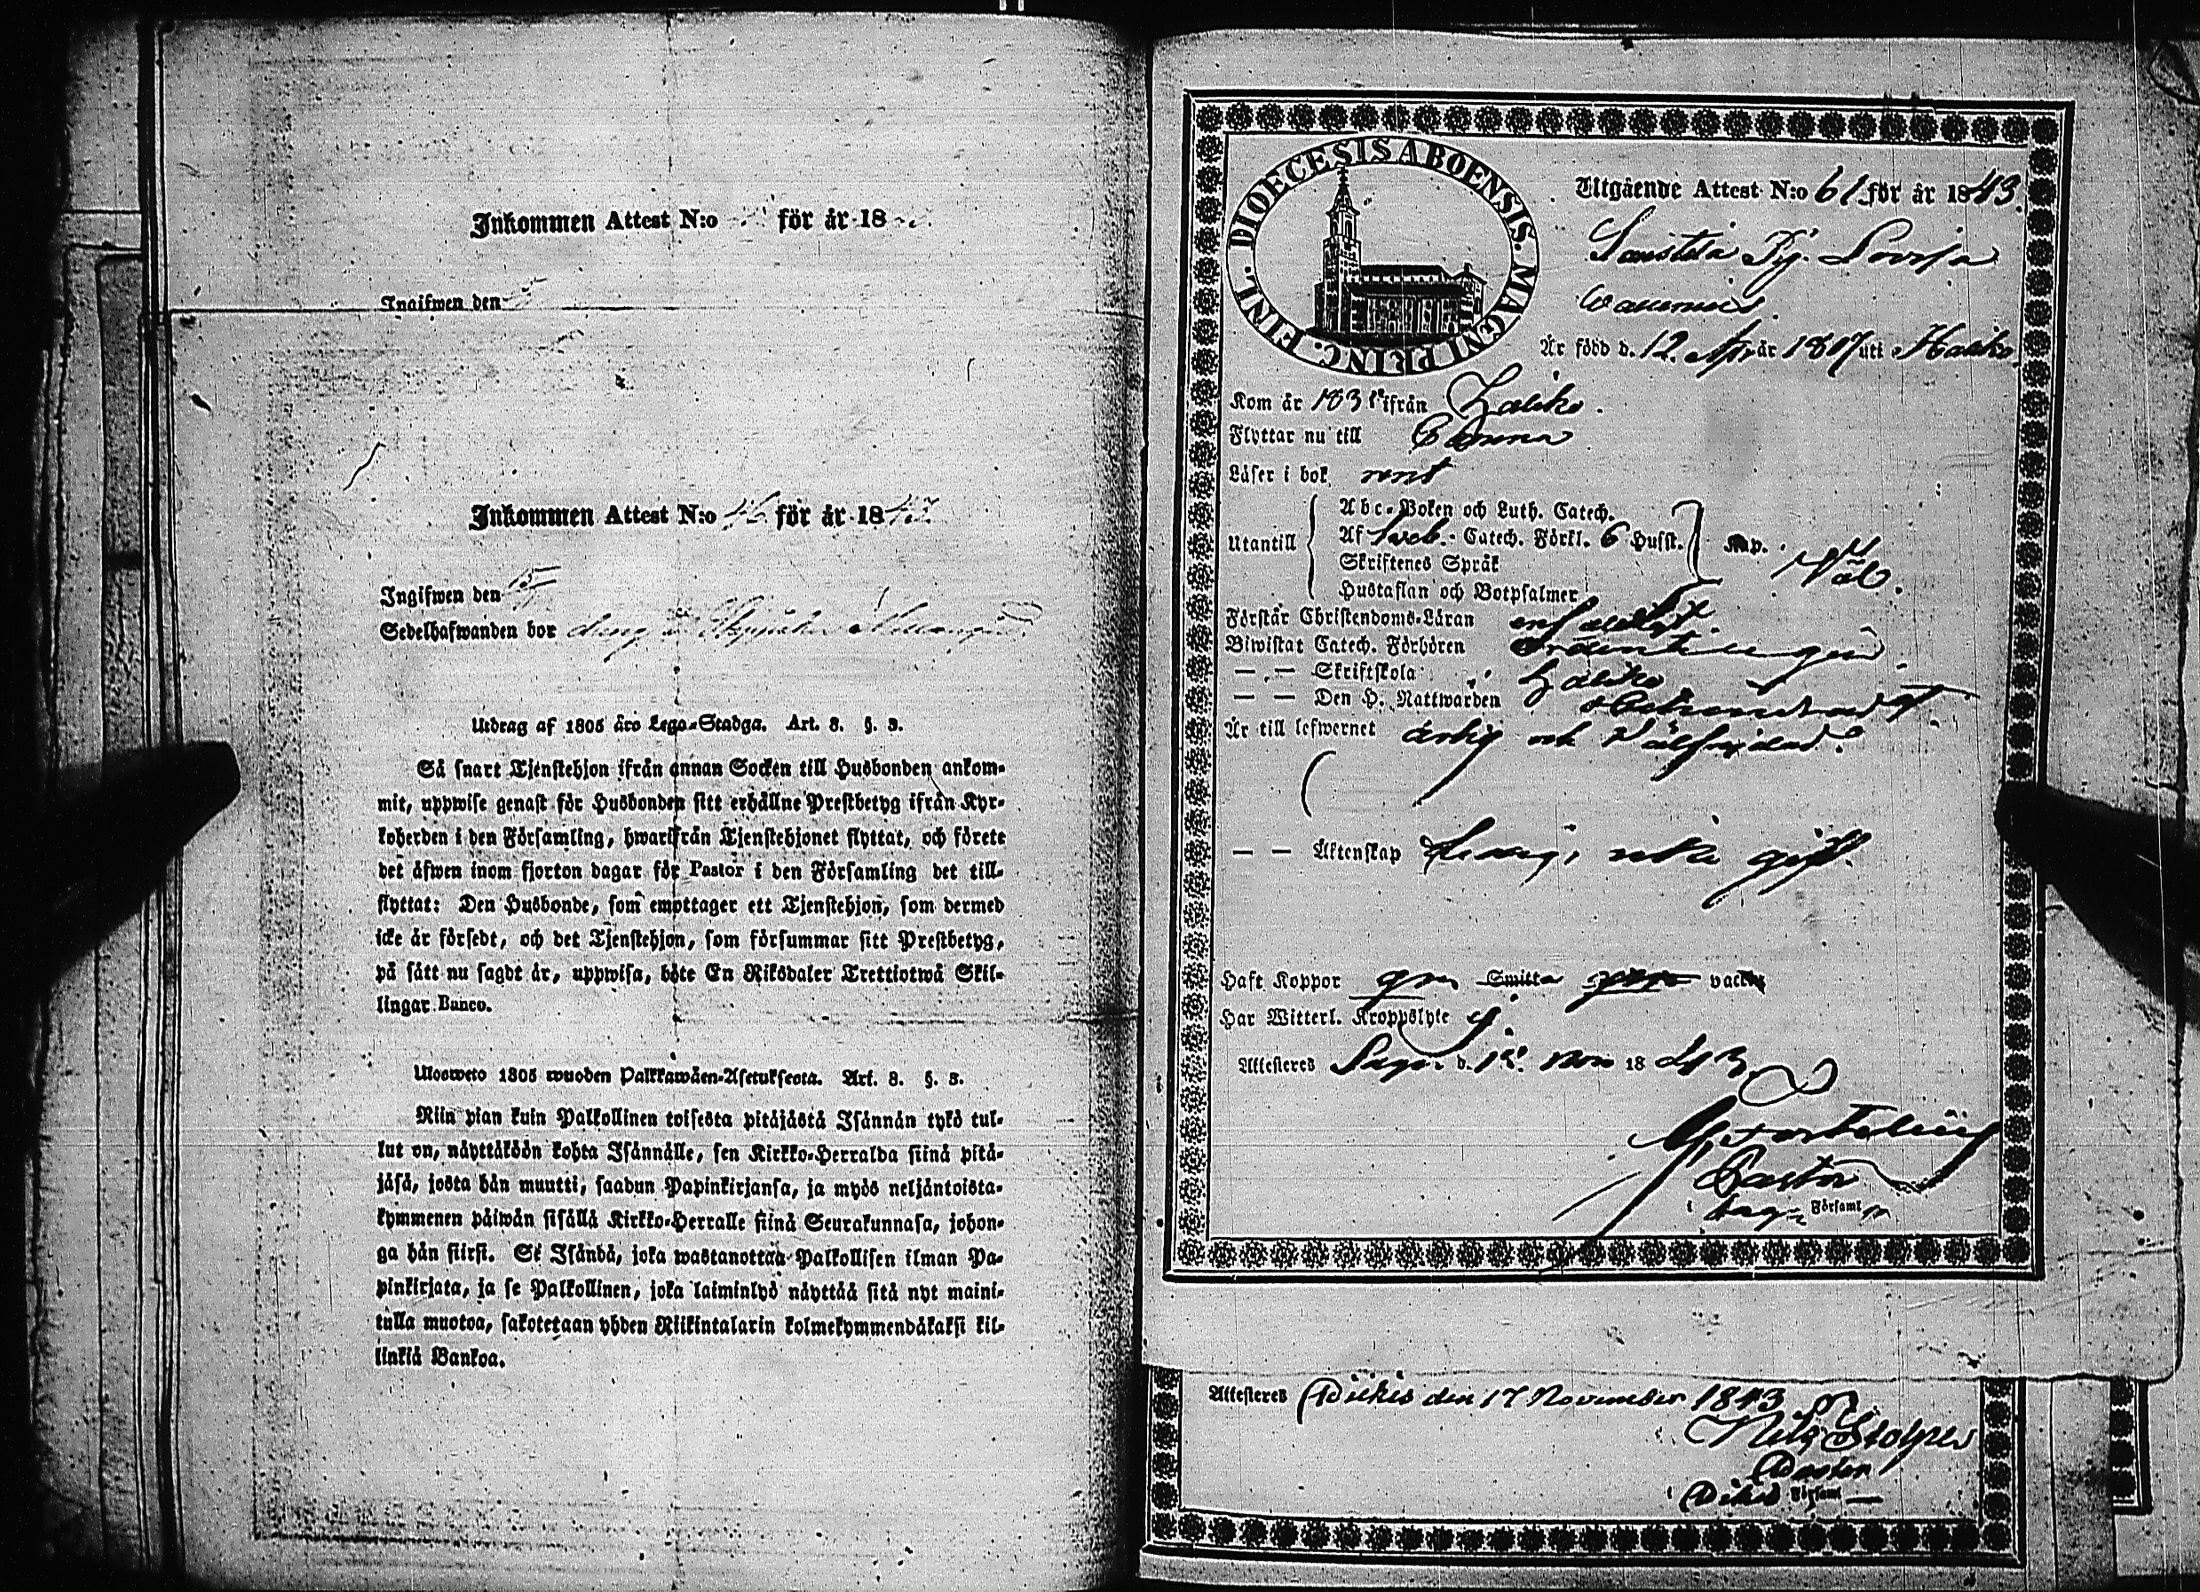 Inkommen Attest N:o för år 18
Ingifwen den
Inkommen Attest N:o 46 för år 1843.
Ingifwen den 15
Sedelhafwanden bor
Utdrag af 1805 års Lego-Stadga. Art. 8. §. 3.
Så snart Tjenstehjon ifrån annan Socken till Husbonden ankom-
mit, uppwise genast för Husbonden sitt erhållne Prestbetyg ifrån Kyr-
koherden i den Församling, hwarifrån Tjenstehjonet flyttat, och förete
det äfwen inom fjorton dagar för Pastor i den Församling det till-
flyttat: Den Husbonde, som emottager ett Tjenstehjon, som dermed
icke är försedt, och det Tjenstehjon, som försummar sitt Prestbetyg,
på sätt nu sagdt är, uppwisa, böte En Riksdaler Trettiotwå Skil-
lingar Banco.
Ulosweto 1805 wuoden Palkkawäen-Asetuksesta. Art. 8. §. 3.
Niin pian kuin Palkollinen toisesta pitäjästä Isännän tykö tul-
lut on, näyttäköön kohta Isännälle, sen Kirkko-Herralda siinä pitä-
jäsä, josta hän muutti, saadun Papinkirjansa, ja myös neljäntoista-
kymmenen päiwän sisällä Kirkko-Herralle siinä Seurakunnasa, johon-
ga hän siirsi. Se Isändä, joka wastanottaa Palkollisen ilman Pa-
pinkirjata, ja se Palkollinen, joka laiminlyö näyttää sitä nyt maini-
tulla muotoa, sakotetaan yhden Riikintalarin kolmekymmendäkaksi kil-
linkiä Bankoa.
DIOECESIS ABOENSIS. MAGNI PRINC. FINL.
Utgående Attest N:o 61 för år 1843.
Pig. Lovisa
Är född d. 12 Apr år 1817 uti Haliko
Kom år 183 ifrån Haliko.
Flyttar nu till
Läser i bok rent
Utantill
Abc-Boken och Luth. Catech.
Af Sveb. Catech. Förkl. 6 Husst. Kap.
Skriftenes Språk
Hustaflan och Botpsalmer
Väl.
Förstår Christendoms-Läran enfaldigt
Biwistat Catech. Förhören ordenteligen.
— — Skriftskola Haliko
— — Den H. Nattwarden
Är till lefwernet ärlig och välfrejdad.
— — Äktenskap ledig, icke gift.
Haft Koppor gm Smitta vacc
Har Witterl. Kroppslyte ej.
Attesteres Sagu d. Nov 1843.
Pastor
i Sagu Församl
Attesteres Pikis den 17 November 1843
Nils Stolpe
Pastor
i Pikis Församl